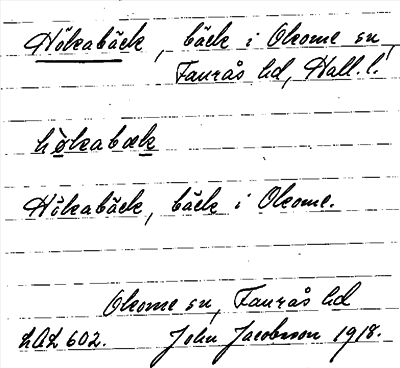 Hökabäck, bäck i Okome sn,
Faurås hd, Hall. l.
hökabæk
Hökabäck, bäck i Okome.
Okome sn, Faurås hd
LAL 602. John Jacobsson 1918.